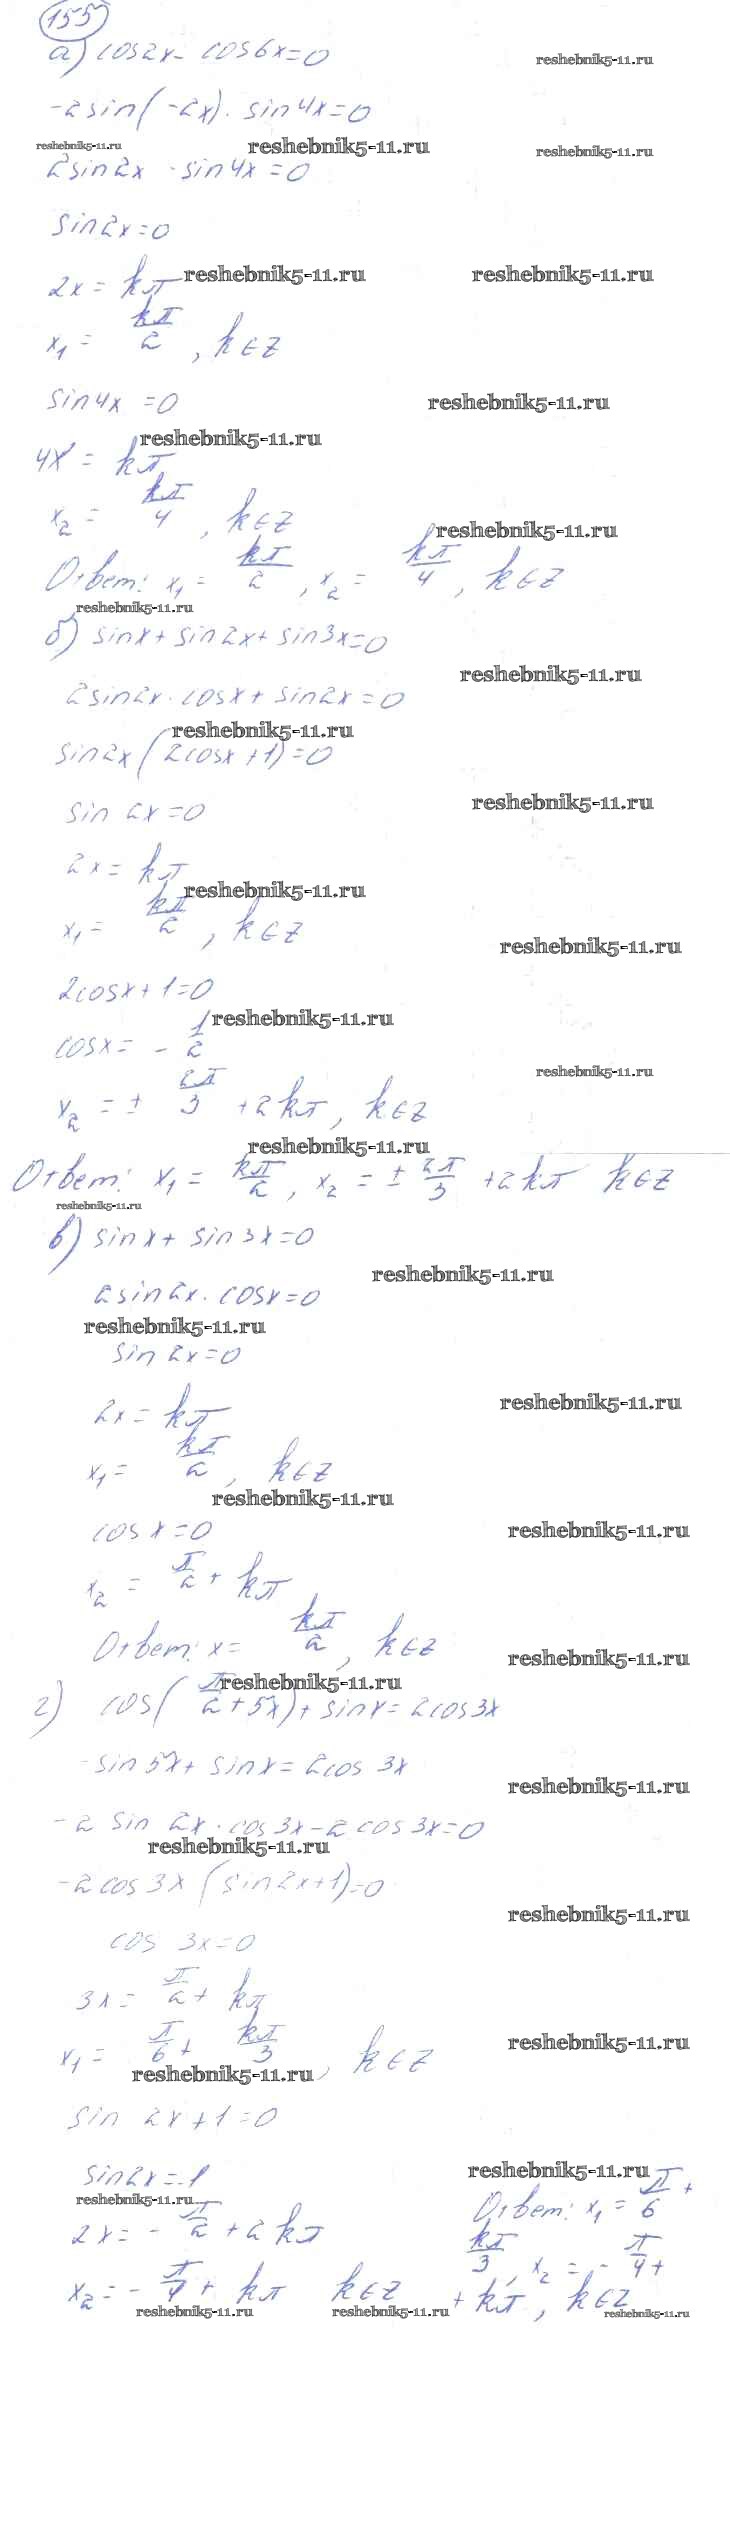 155
а) cos2x - cos6x=0
reshebnik5-11.ru
-2sin(-2x)· sin4x=0
reshebnik5-11.ru
reshebnik5-11.ru
reshebnik5-11.ru
2sin2x ·sin4x=0
sin2x=0
reshebnik5-11.ru
reshebnik5-11.ru
2x = kπ
x₁ = kπ/2, k∈Z
sin4x =0
reshebnik5-11.ru
reshebnik5-11.ru
4x = kπ
x₂ = kπ/4, k∈Z
reshebnik5-11.ru
Ответ: x₁ = kπ/2, x₂ = kπ/4, k∈Z
reshebnik5-11.ru
б) sinx+ sin2x+ sin3x=0
reshebnik5-11.ru
2sin2x·cosx+ sin2x=0
reshebnik5-11.ru
sin2x(2cosx+1)=0
reshebnik5-11.ru
sin2x=0
2x = kπ
reshebnik5-11.ru
x₁ = kπ/2, k∈Z
reshebnik5-11.ru
2cosx+1=0
reshebnik5-11.ru
cosx= - 1/2
reshebnik5-11.ru
x₂ = ± 2π/3 +2kπ, k∈Z
reshebnik5-11.ru
Ответ: x₁ = kπ/2, x₂ = ± 2π/3 +2kπ k∈Z
reshebnik5-11.ru
в) sinx+ sin3x=0
reshebnik5-11.ru
2sin2x·cosx=0
reshebnik5-11.ru
sin2x=0
2x = kπ
reshebnik5-11.ru
x₁ = kπ/2, k∈Z
reshebnik5-11.ru
cosx=0
reshebnik5-11.ru
x₂ = π/2 + kπ
Ответ: x = kπ/2, k∈Z
reshebnik5-11.ru
reshebnik5-11.ru
г) cos(π/2 + 5x)+ sinx= 2cos3x
-sin5x+ sinx= 2cos3x
reshebnik5-11.ru
-2 sin2x·cos3x-2cos3x=0
reshebnik5-11.ru
-2cos3x(sin2x+1)=0
reshebnik5-11.ru
cos 3x=0
3x = π/2 + kπ
x₁ = π/6 + kπ/3, k∈Z
reshebnik5-11.ru
reshebnik5-11.ru
sin 2x+1=0
sin2x=-1
reshebnik5-11.ru
reshebnik5-11.ru
2x= - π/2 +2kπ
x₂ = - π/4 + kπ k∈Z
Ответ: x₁ = π/6 +
kπ/3, x₂ = - π/4 +
+ kπ, k∈Z
reshebnik5-11.ru
reshebnik5-11.ru
reshebnik5-11.ru